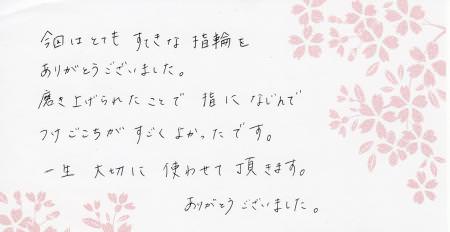 今回はとても すてきな 指輪を
ありがとうございました。
磨き上げられたことで 指に なじんで
つけごこちが すごく よかったです。
一生 大切に 使わせて 頂きます。
ありがとうございました。